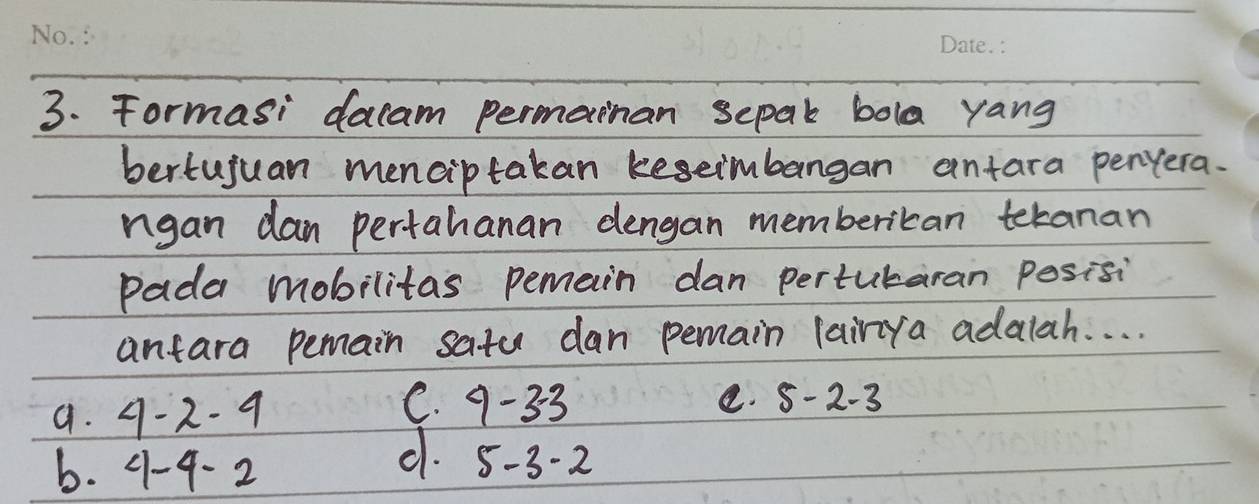 No. :
Date. :
3. Formasi dalam permainan sepak bola yang
bertujuan menciptakan keseimbangan antara penyera-
ngan dan pertahanan dengan memberikan tekanan
pada mobilitas pemain dan pertukaran posisi
antara pemain satu dan pemain lainya adalah....
a. 4-2-4 c. 4-3-3 e. 5-2-3
b. 4-4-2 d. 5-3-2